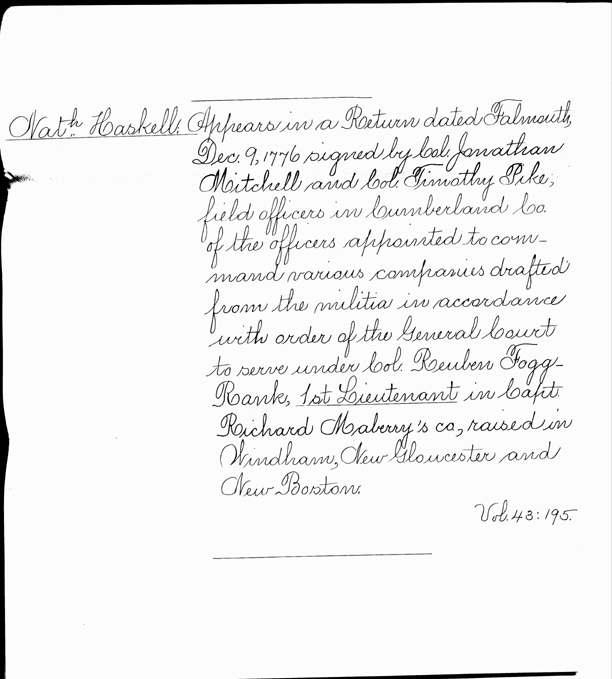 Nath Haskell: Appears in a Return dated Falmouth,
Dec. 9, 1776 signed by Col. Jonathan
Mitchell and Col. Timothy Pike,
field officers in Cumberland Co.
of the officers appointed to com-
mand various companies drafted
from the militia in accordance
with order of the General Court
to serve under Col. Reuben Fogg-
Rank, 1st Lieutenant in Capt.
Richard Maberry's co, raised in
Windham, New Gloucester and
New Boston.
Vol. 43: 195.